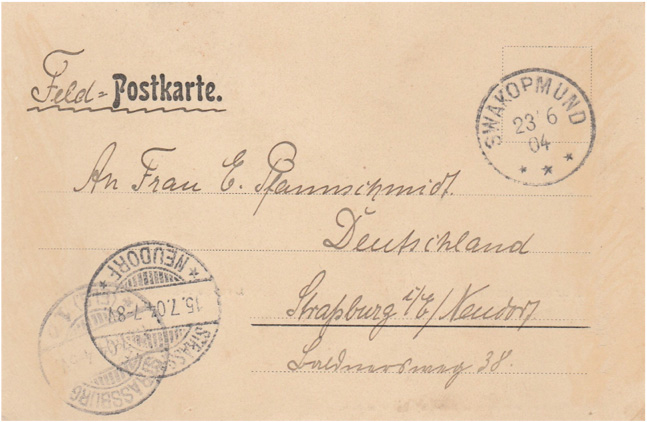 Feld-Postkarte.
SWAKOPMUND
23 6
04
* * *
An Frau E. Pfannschmidt.
Deutschland
Straßburg i/E/Neudorf
38.
* NEUDORF *
15.7.04. 7-8V.
STRASSBURG